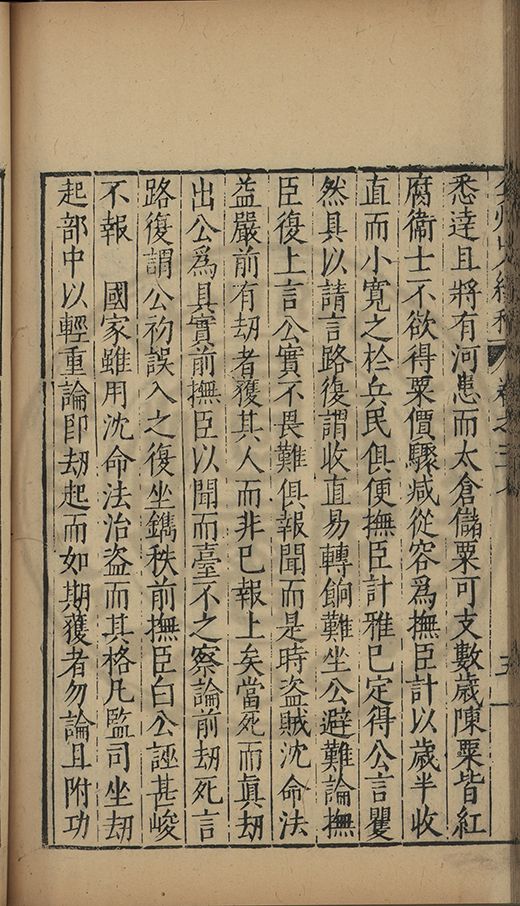 悉達且將有河患而太倉儲粟可支數歲陳粟皆紅
腐衛士不欲得粟價驟减從容爲撫臣計以歲半收
直而小寛之於兵民俱便撫臣計雅已定得公言瞿
然具以請言路復謂收直易轉餉難坐公避難論撫
臣復上言公實不畏難俱報聞而是時盗賊沈命法
益嚴前有刼者獲其人而非巳報上矣當死而眞刼
出公爲具實前撫臣以聞而臺不之察論前刼死言
路復謂公初誤入之復坐鐫秩前撫臣白公誣甚峻
不報　國家雖用沈命法治盗而其格凡監司坐刼
起部中以輕重論即刼起而如期獲者勿論且附功